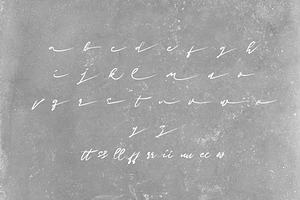 a b c d e f g h
i j k l m n o
p q r s t u v w x
y z
tt ss ll ff rr ii nn ee oo